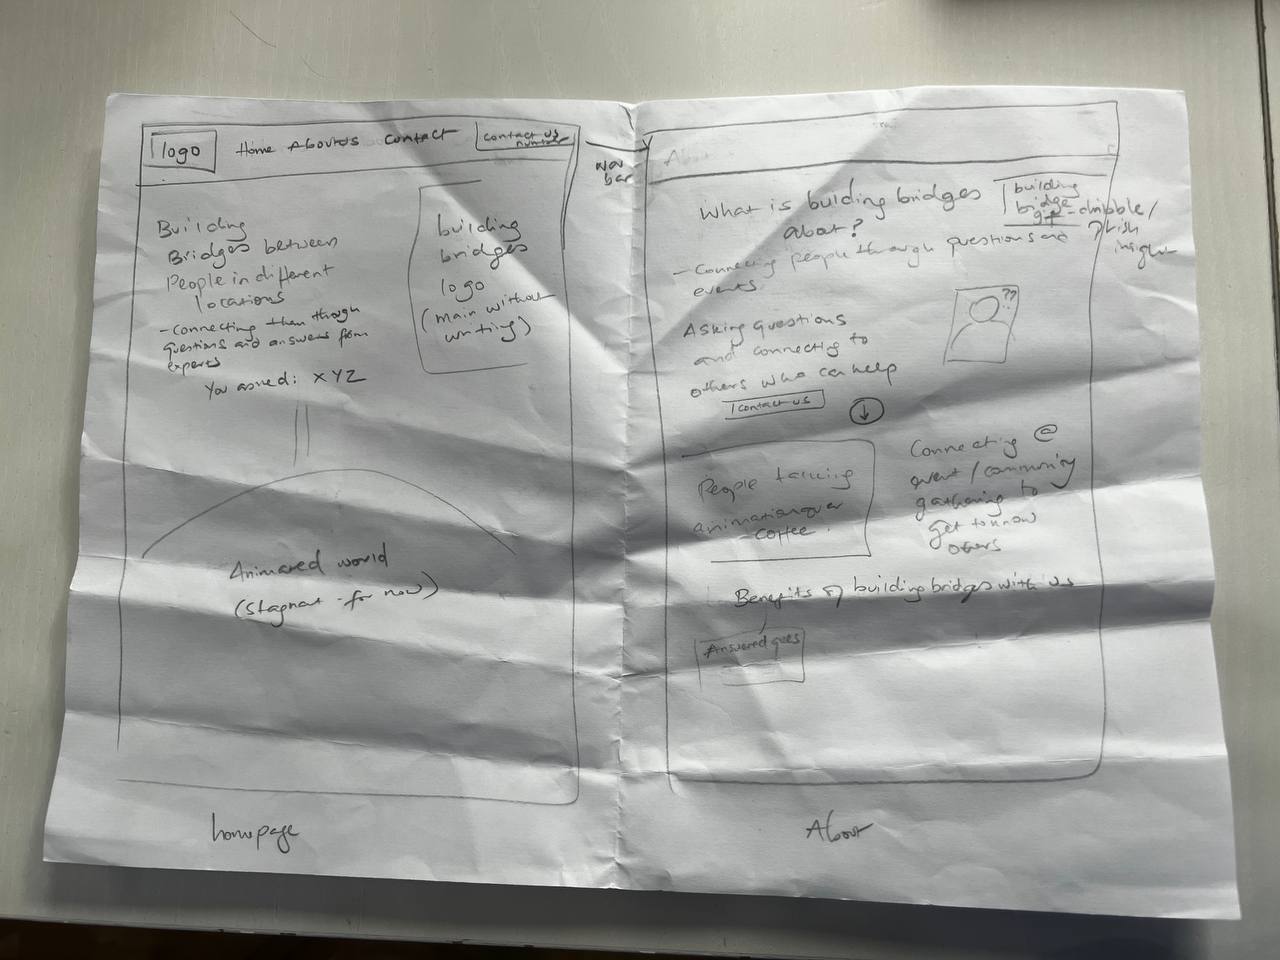 logo
Home About us Contact
contact us
number
nav
bar
Building
Bridges between
People in different
locations
- Connecting them through
questions and answers from
experts
You asked: XYZ
building
bridges
logo
(main without
writing)
Animated world
(stagnat for now)
homepage
What is building bridges
about?
building
bridge
gif - dribble/
insight
- Connecting people through questions and
events
Asking questions
and connecting to
others who can help
contact us
??
People talking
animation over
coffee.
Connecting @
event/community
gathering to
get to know
others
Benefits of building bridges with us
Answered ques
About